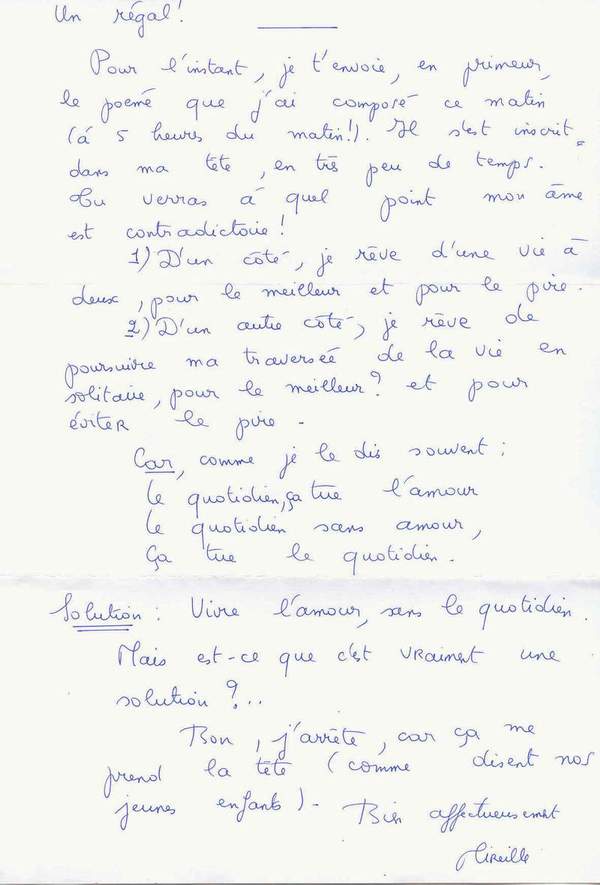 Un régal!
Pour l'instant, je t'envoie, en primeur,
le poème que j'ai composé ce matin
(à 5 heures du matin!). Il s'est inscrit
dans ma tête, en très peu de temps.
Tu verras à quel point mon âme
est contradictoire!
1) D'un côté, je rêve d'une vie à
deux, pour le meilleur et pour le pire.
2) D'un autre côté, je rêve de
poursuivre ma traversée de la vie en
solitaire, pour le meilleur? et pour
éviter le pire.
Car, comme je le dis souvent:
le quotidien, ça tue l'amour
le quotidien sans amour,
Ça tue le quotidien.
Solution: Vivre l'amour, sans le quotidien.
Mais est-ce que c'est vraiment une
solution?..
Bon, j'arrête, car ça me
prend la tête (comme disent nos
jeunes enfants). Bien affectueusement
Mireille